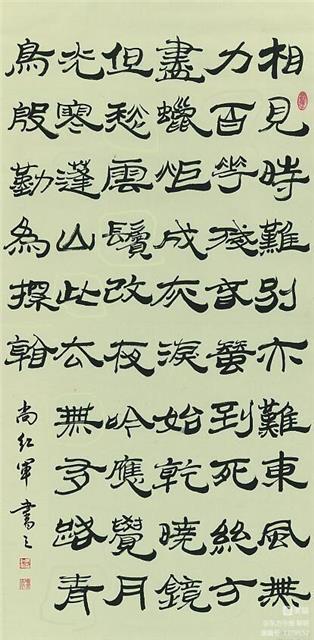 相見時難別亦難東風無
力百花殘春蠶到死絲方
盡蠟炬成灰淚始乾曉鏡
但愁雲鬢改夜吟應覺月
光寒蓬山此去無多路青
鳥殷勤為探看
尚紅軍書之
美篇